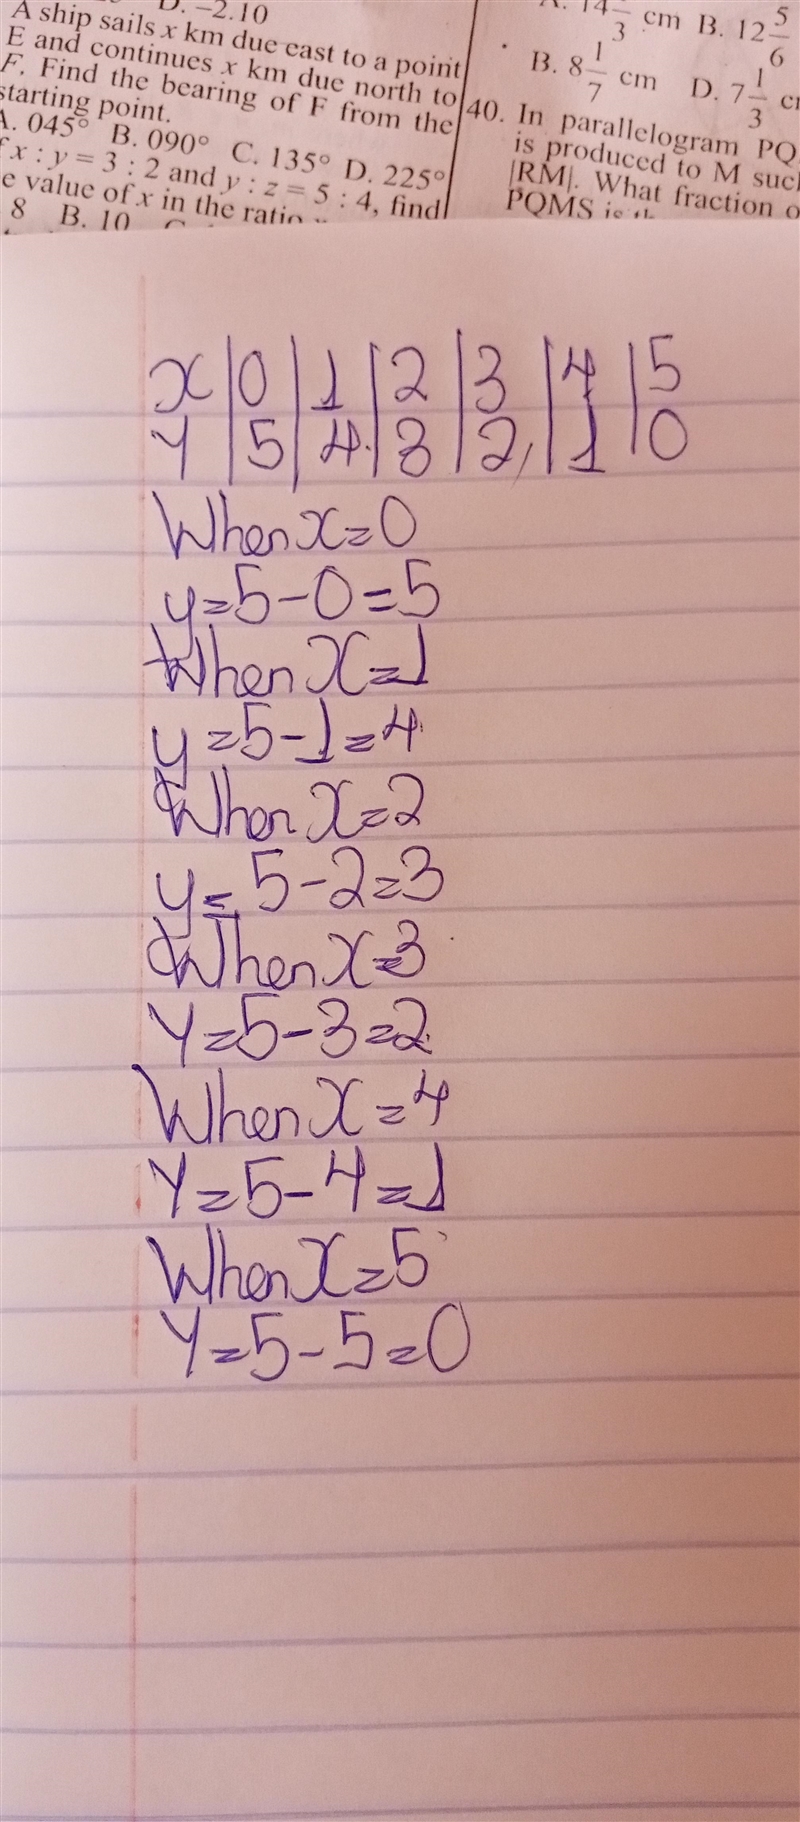 D. –2.10
A ship sails x km due east to a point
E and continues x km due north to
F. Find the bearing of F from the
starting point.
A. 045° B. 090° C. 135° D. 225°
x : y = 3 : 2 and y : z = 5 : 4, find
e value of x in the ratio
8 B. 10
14 /3 cm B. 12 5/6
B. 8 1/7 cm D. 7 1/3
40. In parallelogram PQ
is produced to M suc
|RM|. What fraction o
PQMS is
x | 0 | 1 | 2 | 3 | 4 | 5
y | 5 | 4 | 3 | 2 | 1 | 0
When x=0
y=5-0=5
When x=1
y=5-1=4
When x=2
y=5-2=3
When x=3
y=5-3=2
When x=4
y=5-4=1
When x=5
y=5-5=0